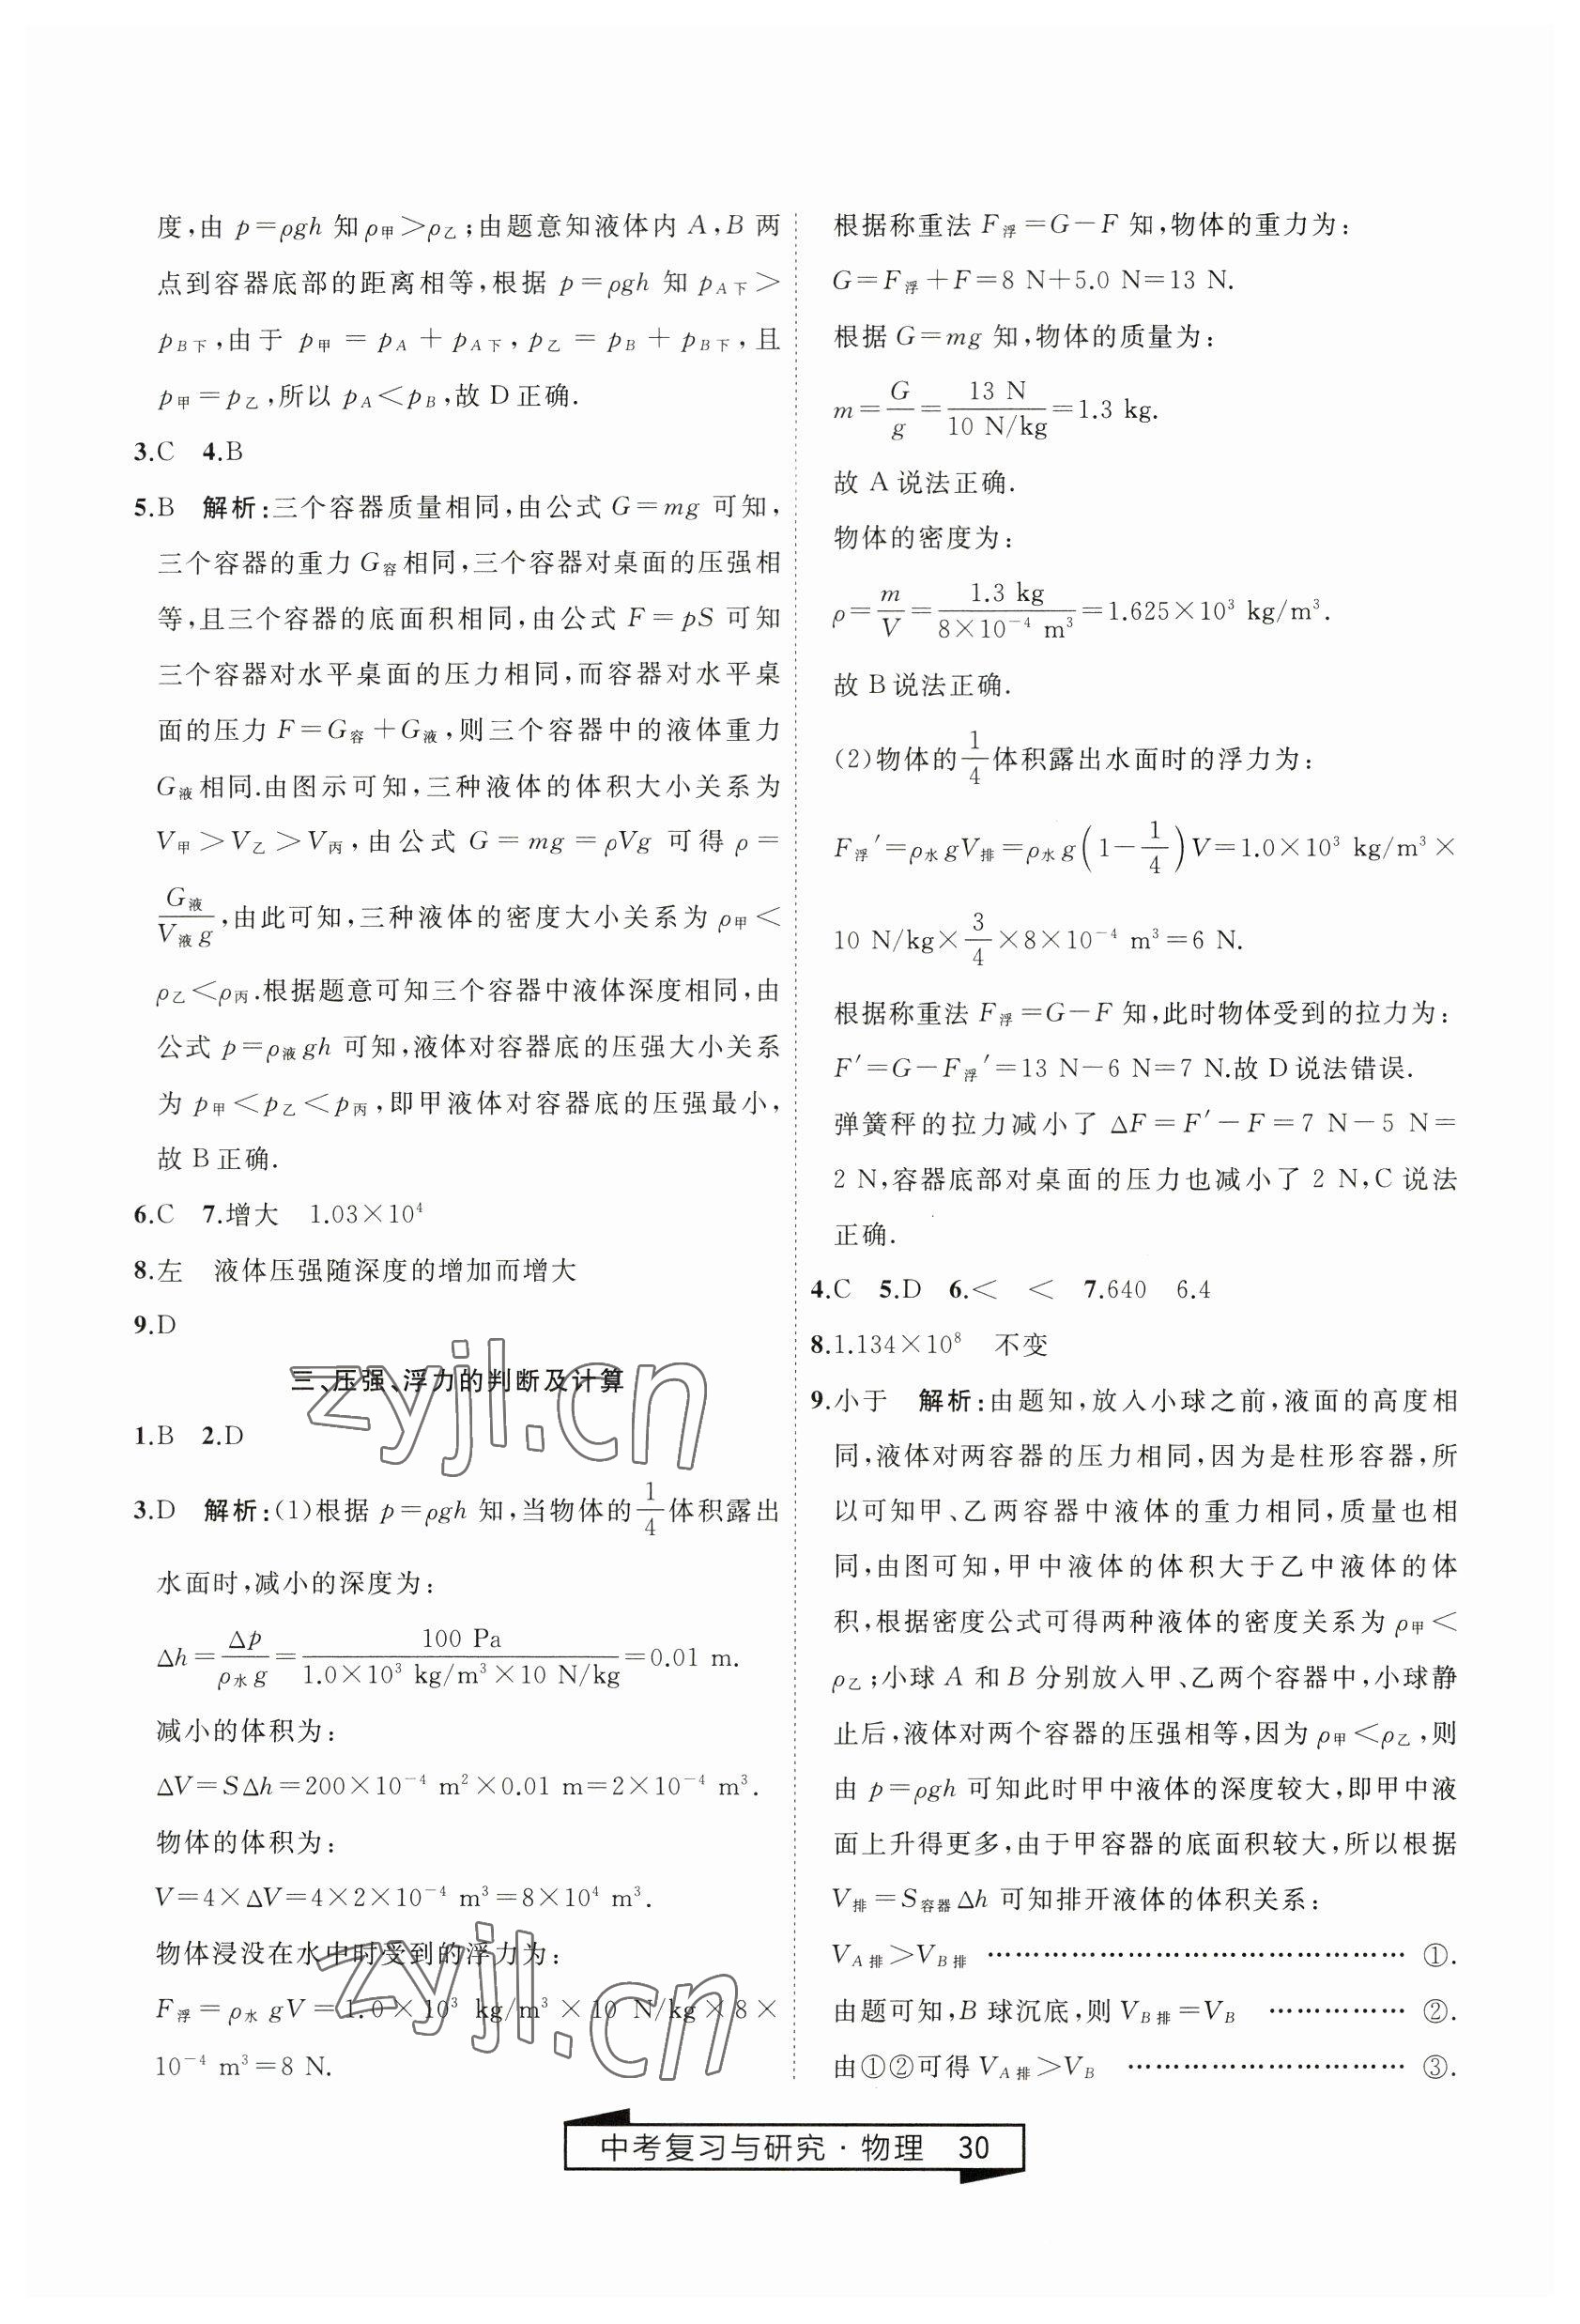 度,由 p=ρgh 知ρ甲>ρ乙;由题意知液体内 A,B 两
点到容器底部的距离相等,根据 p=ρgh 知 pA下>
pB下,由于 p甲=pA+pA下,p乙=pB+pB下,且
p甲=p乙,所以 pA<pB,故 D 正确.
3.C 4.B
5.B 解析:三个容器质量相同,由公式 G=mg 可知,
三个容器的重力 G容相同,三个容器对桌面的压强相
等,且三个容器的底面积相同,由公式 F=pS 可知
三个容器对水平桌面的压力相同,而容器对水平桌
面的压力 F=G容+G液,则三个容器中的液体重力
G液相同.由图示可知,三种液体的体积大小关系为
V甲>V乙>V丙,由公式 G=mg=ρVg 可得 ρ=
G液/V液g,由此可知,三种液体的密度大小关系为 ρ甲<
ρ乙<ρ丙.根据题意可知三个容器中液体深度相同,由
公式 p=ρ液gh 可知,液体对容器底的压强大小关系
为 p甲<p乙<p丙,即甲液体对容器底的压强最小,
故 B 正确.
6.C 7.增大 1.03×10⁴
8.左 液体压强随深度的增加而增大
9.D
三、压强、浮力的判断及计算
1.B 2.D
3.D 解析:(1)根据 p=ρgh 知,当物体的1/4体积露出
水面时,减小的深度为:
Δh=Δp/ρ水g=100 Pa/1.0×10³ kg/m³×10 N/kg=0.01 m.
减小的体积为:
ΔV=SΔh=200×10⁻⁴ m²×0.01 m=2×10⁻⁴ m³.
物体的体积为:
V=4×ΔV=4×2×10⁻⁴ m³=8×10⁴ m³.
物体浸没在水中时受到的浮力为:
F浮=ρ水gV=1.0×10³ kg/m³×10 N/kg×8×
10⁻⁴ m³=8 N.
根据称重法 F浮=G-F 知,物体的重力为:
G=F浮+F=8 N+5.0 N=13 N.
根据 G=mg 知,物体的质量为:
m=G/g=13 N/10 N/kg=1.3 kg.
故 A 说法正确.
物体的密度为:
ρ=m/V=1.3 kg/8×10⁻⁴ m³=1.625×10³ kg/m³.
故 B 说法正确.
(2)物体的1/4体积露出水面时的浮力为:
F浮′=ρ水gV排=ρ水g(1-1/4)V=1.0×10³ kg/m³×
10 N/kg×3/4×8×10⁻⁴ m³=6 N.
根据称重法 F浮=G-F 知,此时物体受到的拉力为:
F′=G-F浮′=13 N-6 N=7 N.故 D 说法错误.
弹簧秤的拉力减小了 ΔF=F′-F=7 N-5 N=
2 N,容器底部对桌面的压力也减小了 2 N,C 说法
正确.
4.C 5.D 6.< < 7.640 6.4
8.1.134×10⁸ 不变
9.小于 解析:由题知,放入小球之前,液面的高度相
同,液体对两容器的压力相同,因为是柱形容器,所
以可知甲、乙两容器中液体的重力相同,质量也相
同,由图可知,甲中液体的体积大于乙中液体的体
积,根据密度公式可得两种液体的密度关系为 ρ甲<
ρ乙;小球 A 和 B 分别放入甲、乙两个容器中,小球静
止后,液体对两个容器的压强相等,因为 ρ甲<ρ乙,则
由 p=ρgh 可知此时甲中液体的深度较大,即甲中液
面上升得更多,由于甲容器的底面积较大,所以根据
V排=S容器Δh 可知排开液体的体积关系:
VA排>VB排 ………………………………………… ①.
由题可知,B 球沉底,则 VB排=VB …………… ②.
由①②可得 VA排>VB ………………………… ③.
中考复习与研究·物理 30
zyjl.cn
zyjl.cn